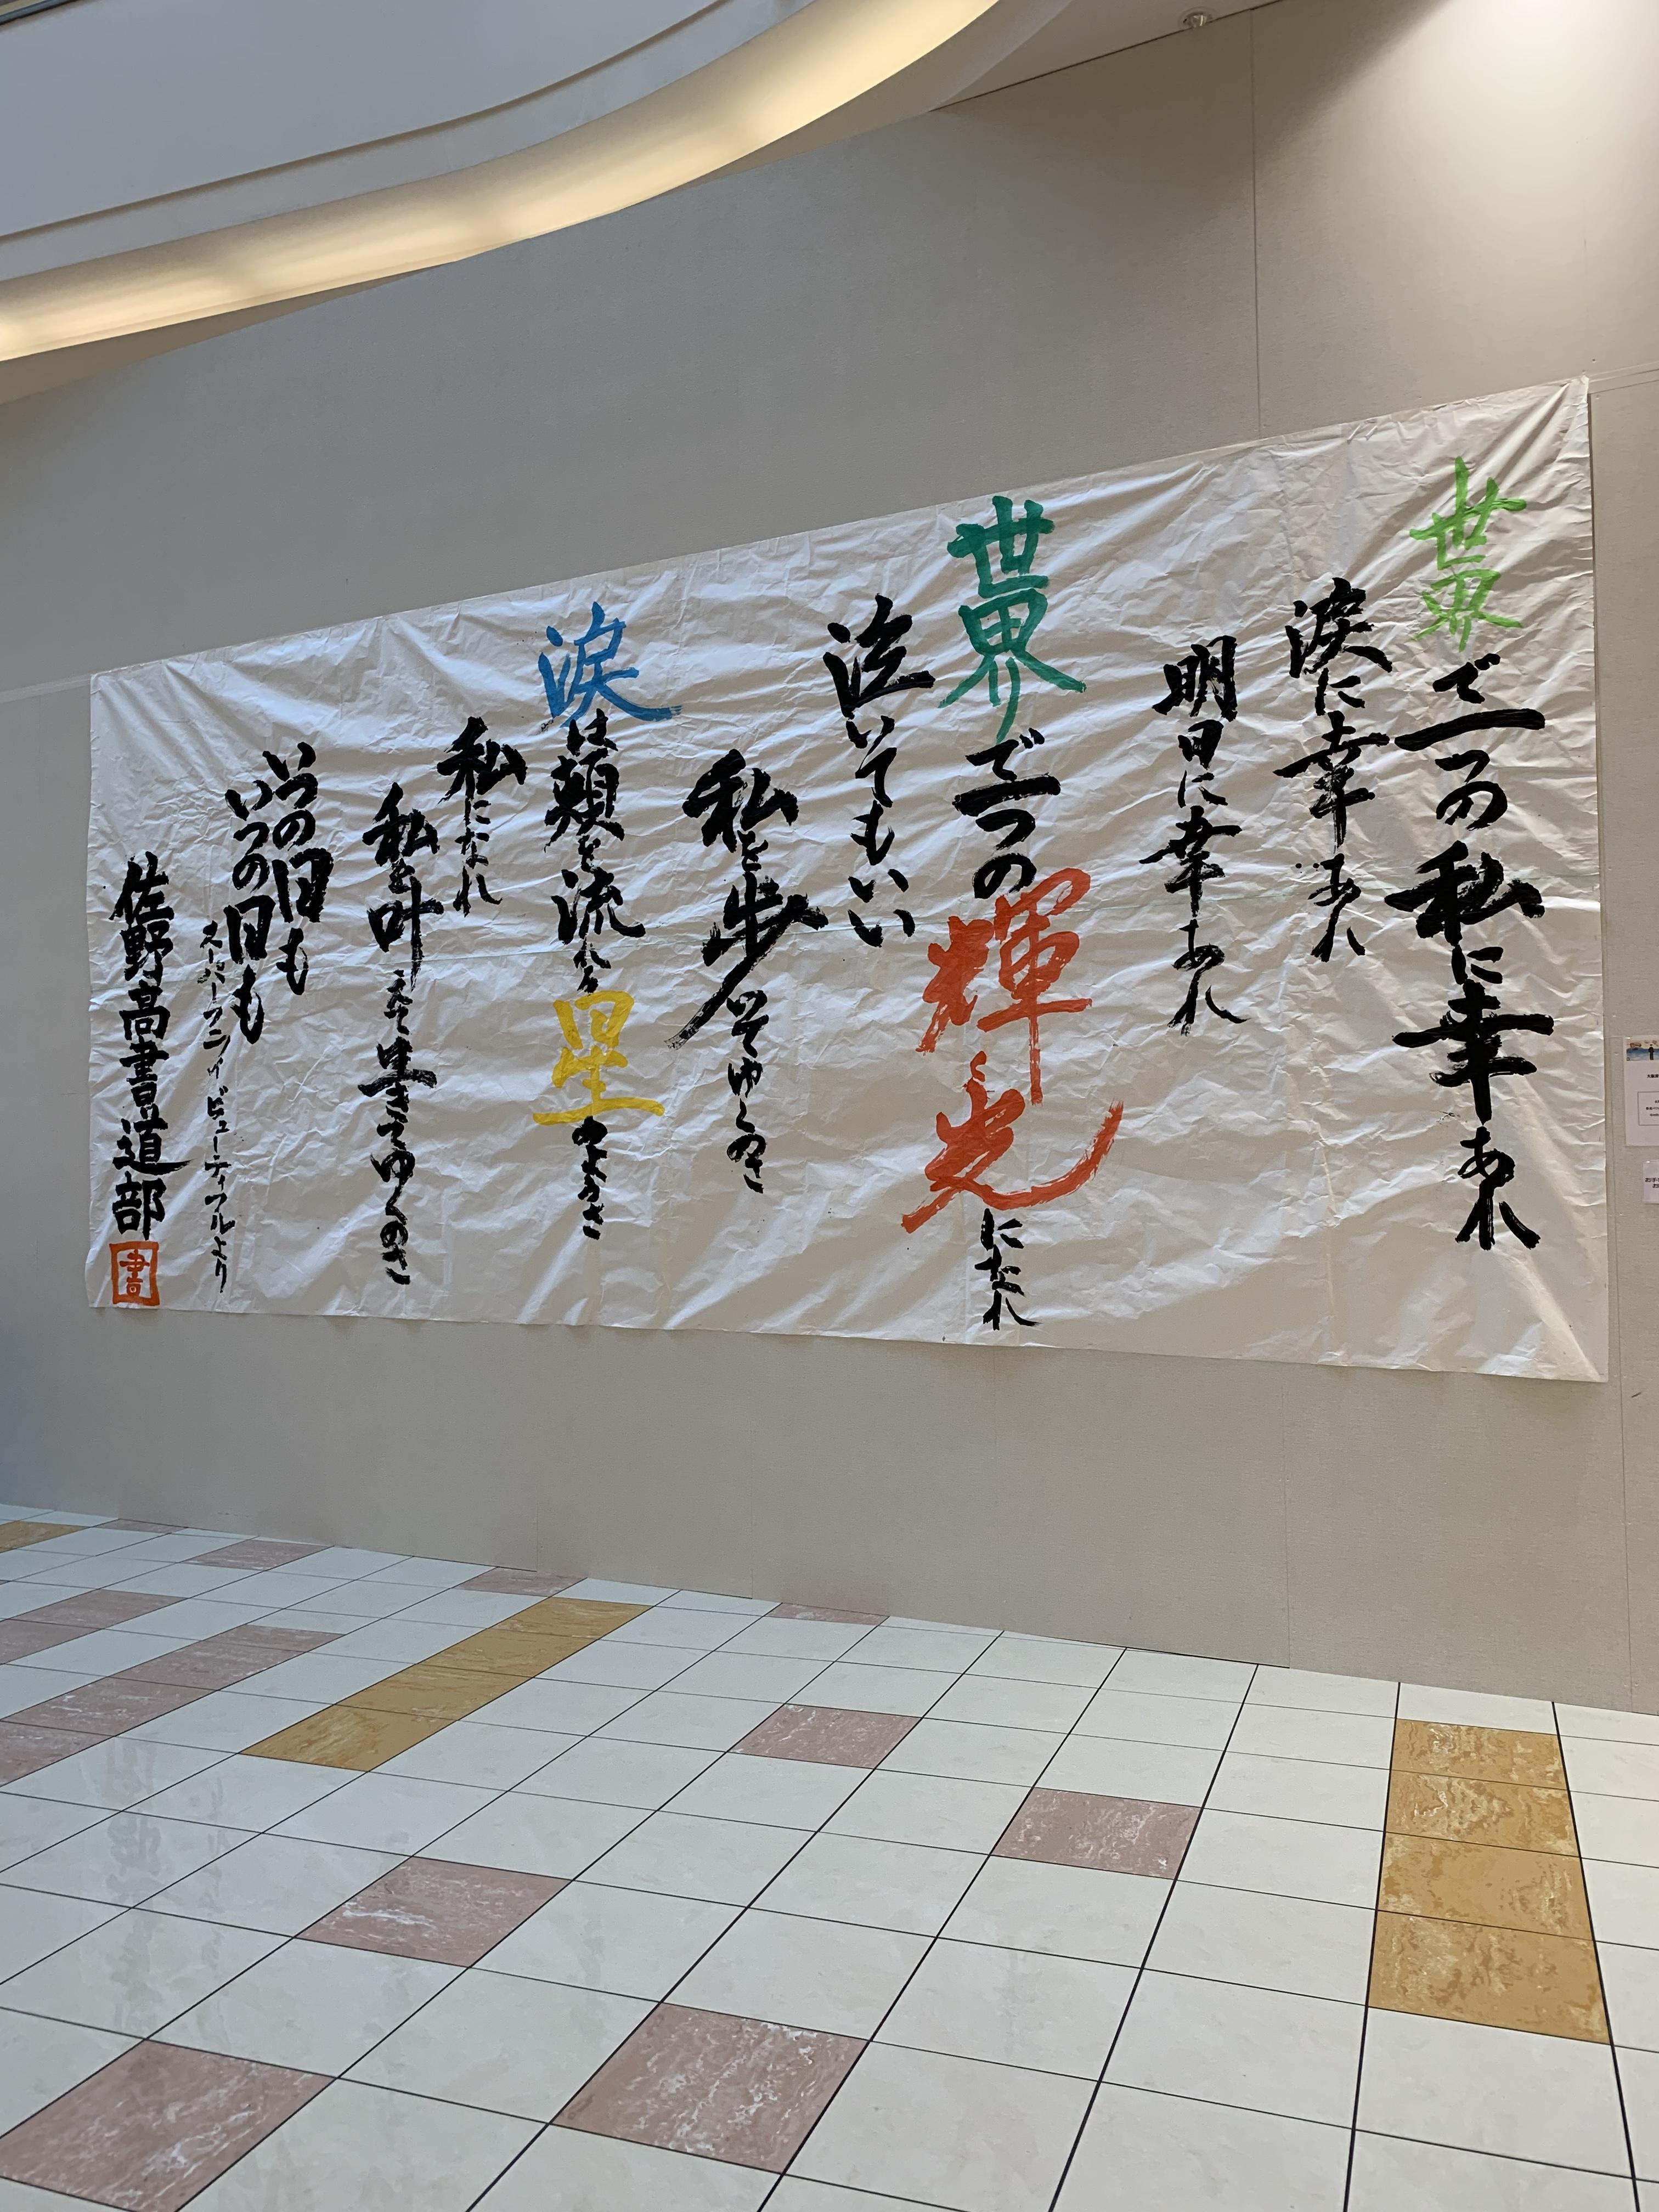 世界で一つの私に幸あれ
涙に幸あれ
明日に幸あれ
世界で一つの輝く光になれ
泣いてもいい
私を歩いてゆくのさ
涙は頬を流れる星のようさ
私になれ
私を叶えて生きてゆくのさ
いつの日も
いつの日も
スーパーフライ ビューティフルより
佐野高書道部
書